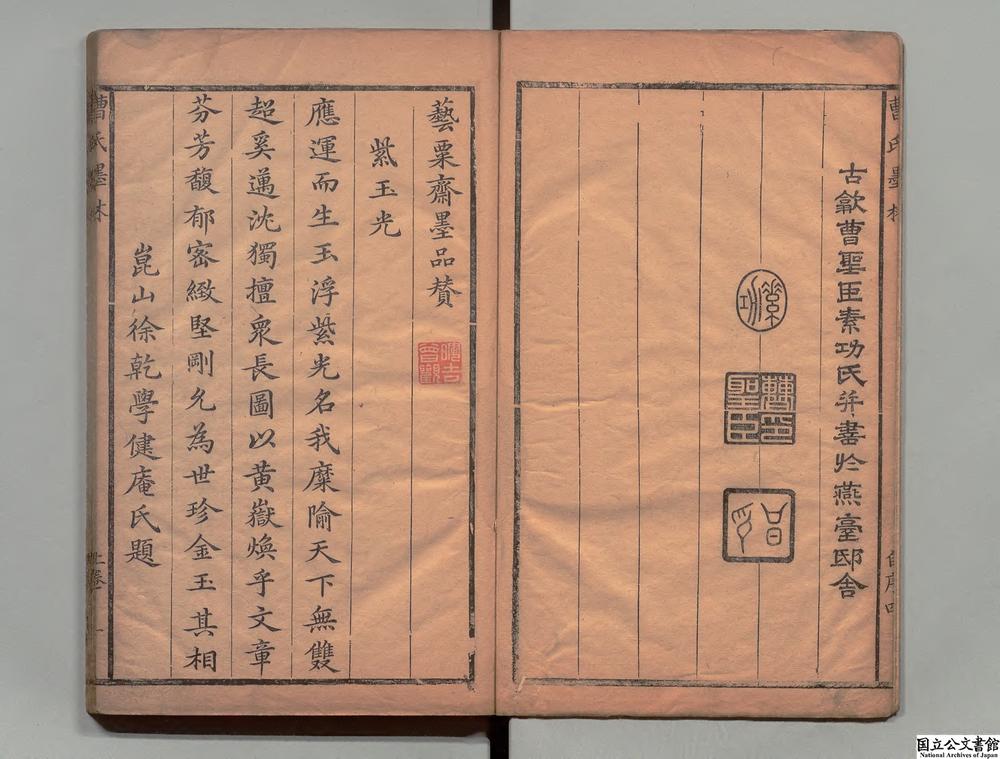 古歙曹聖臣素功氏并書於燕臺邸舍
曹聖臣印
曹氏墨林
自序四
藝粟齋墨品贊
紫玉光
應運而生玉浮紫光名我糜隃天下無雙
超奚邁沈獨擅衆長圖以黄嶽煥乎文章
芬芳馥郁宻緻堅剛允為世珍金玉其相
崑山徐乾學健庵氏題
曹氏墨林
上卷
一
国立公文書館
National Archives of Japan